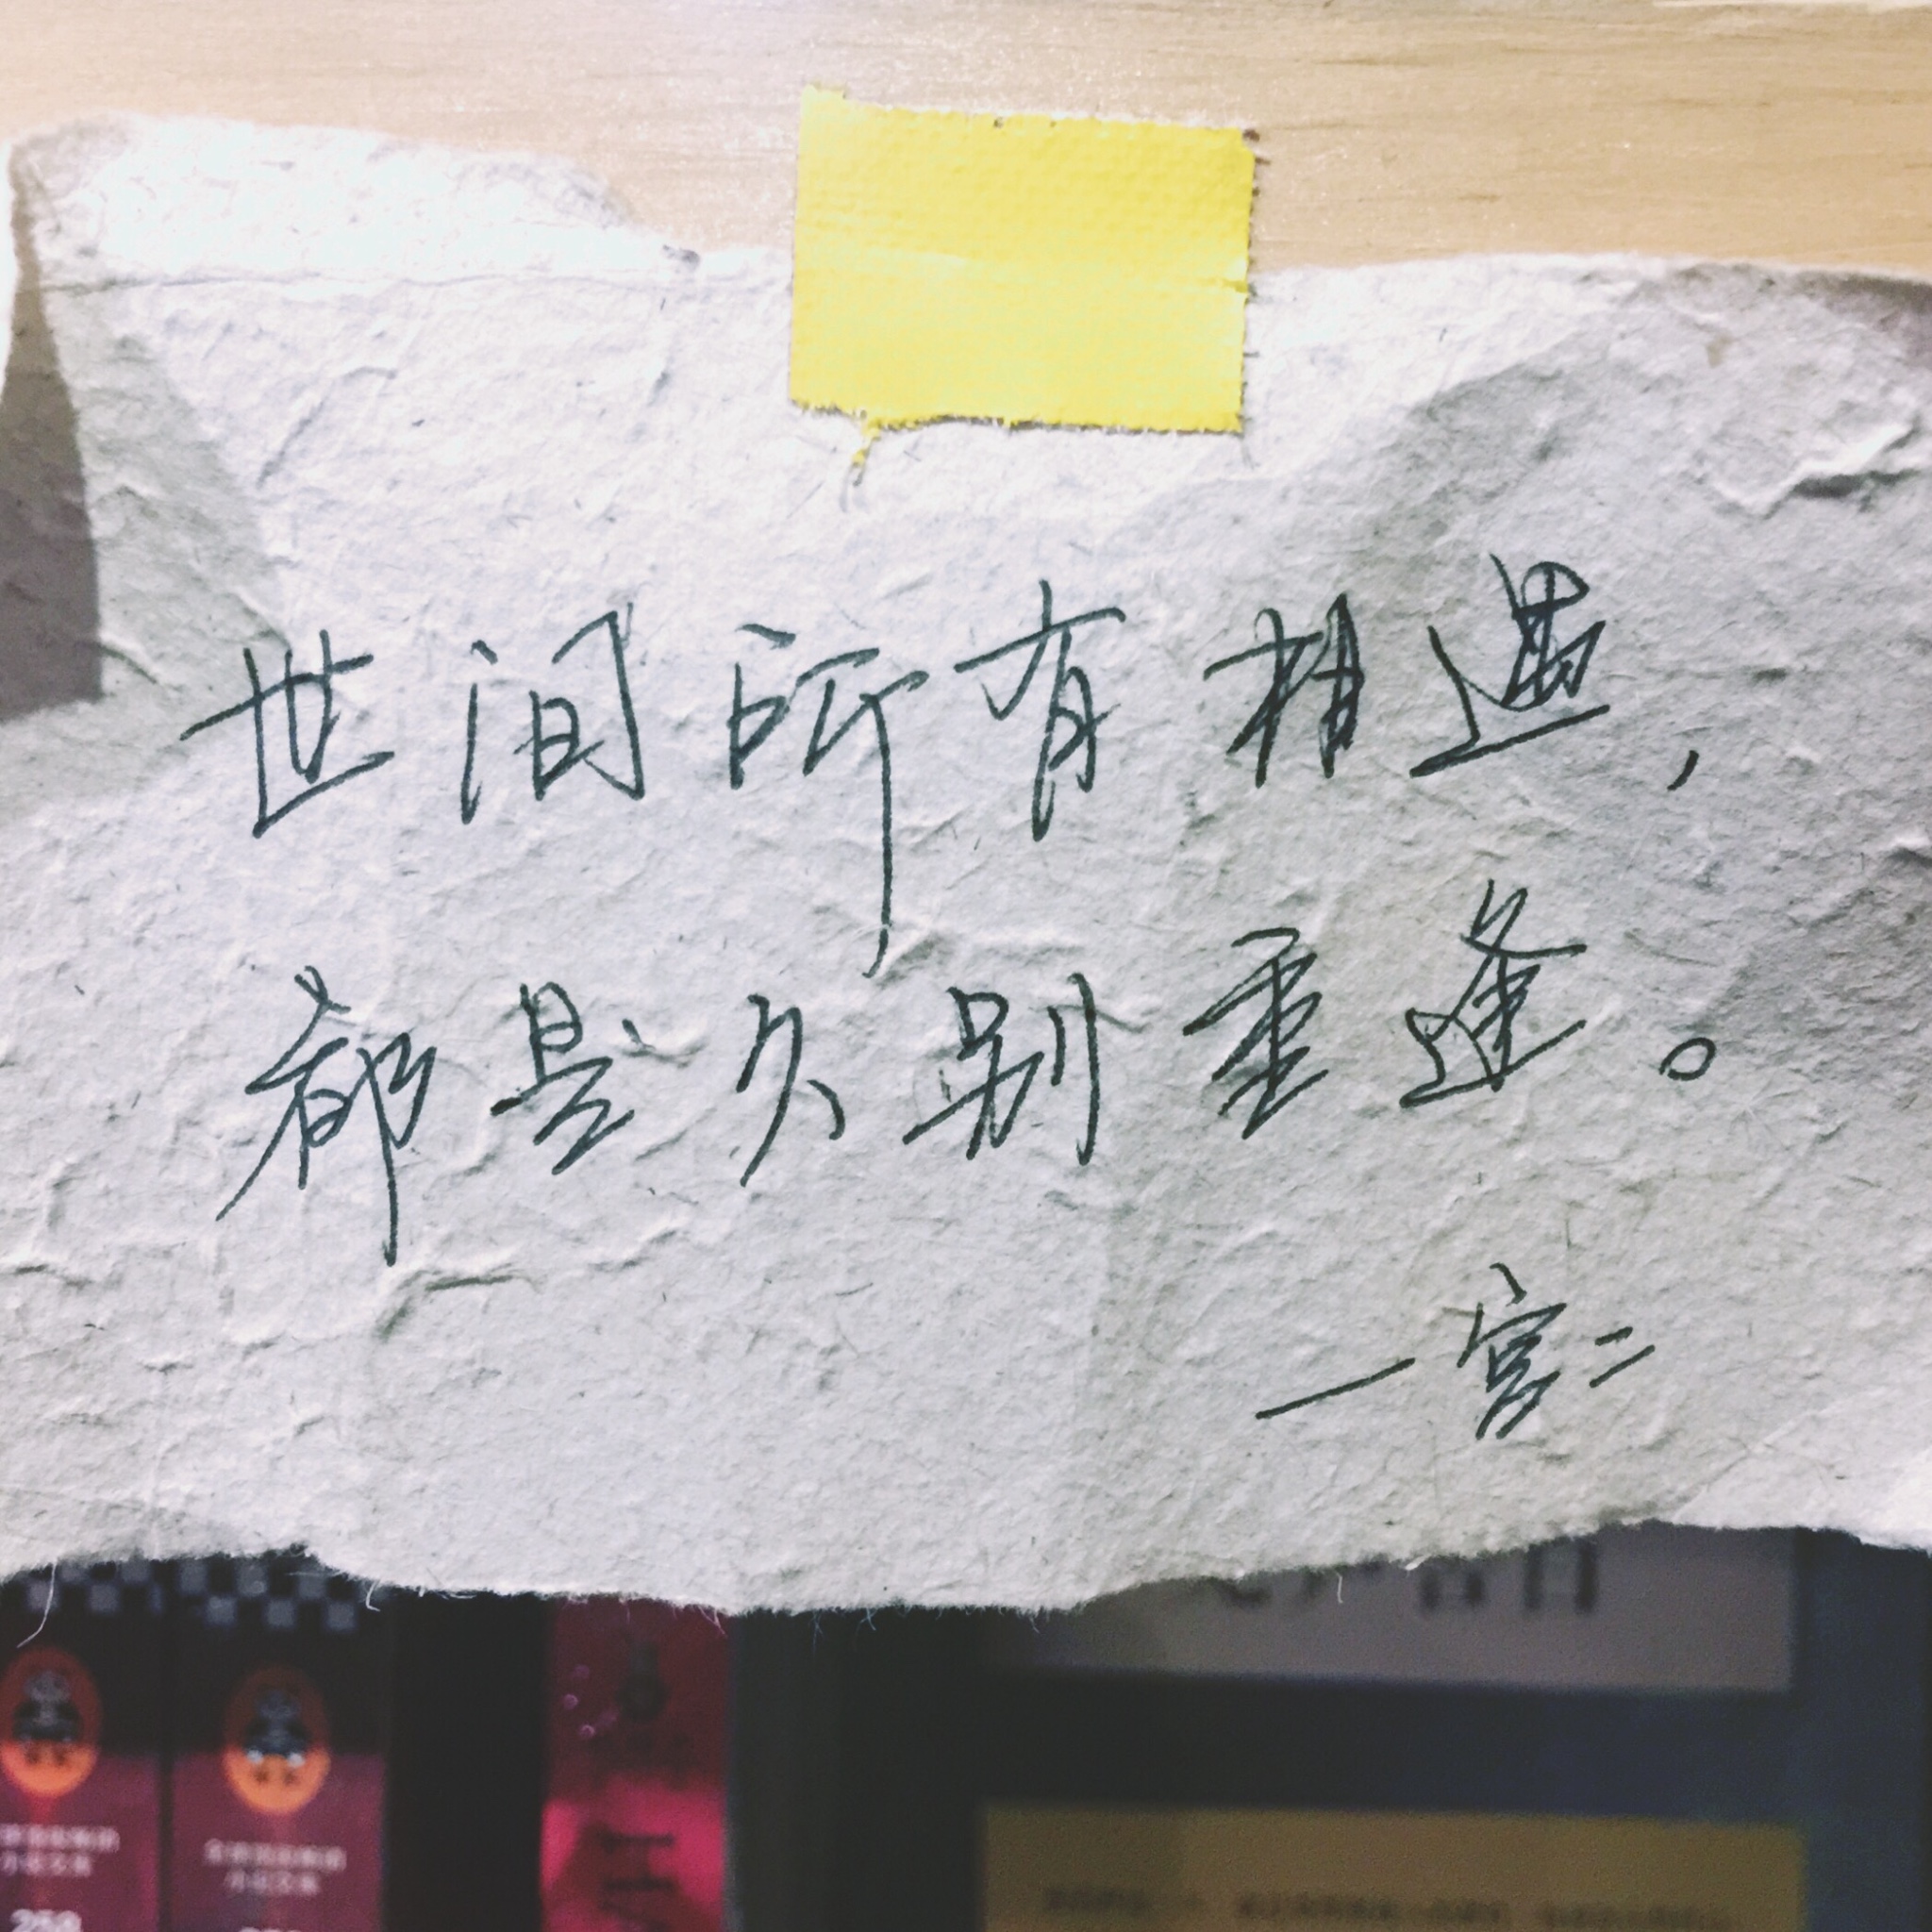 世间所有相遇，
都是久别重逢。
—宫二